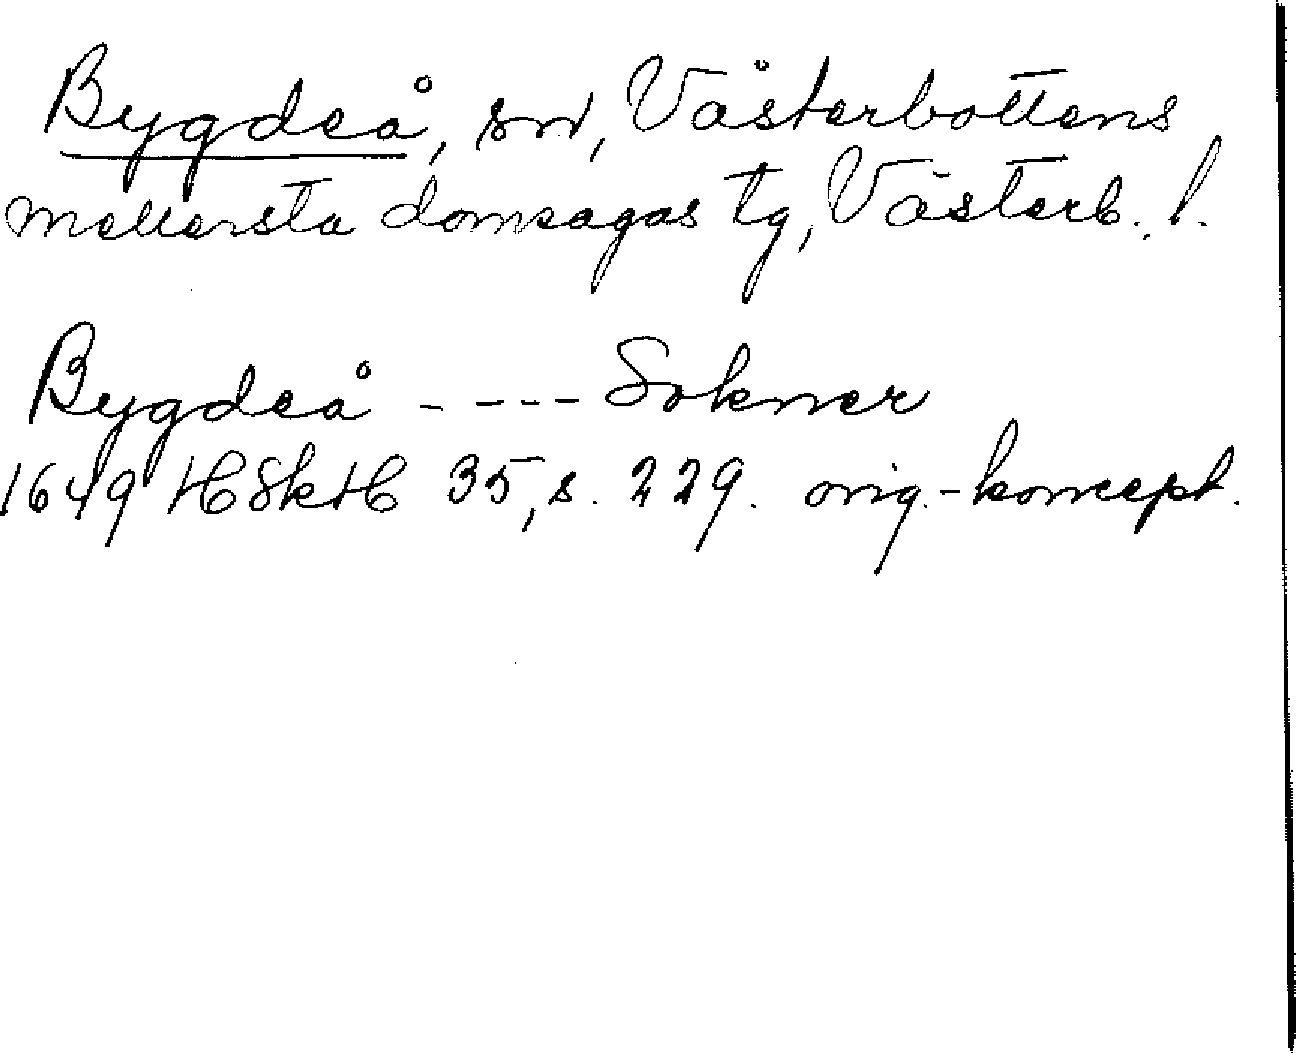 Bygdeå, sn, Västerbottens
mellersta domsagas tg, Västerb. l.
Bygdeå ---- Sokner
1649 HSkH 35, s. 229. orig.-koncept.